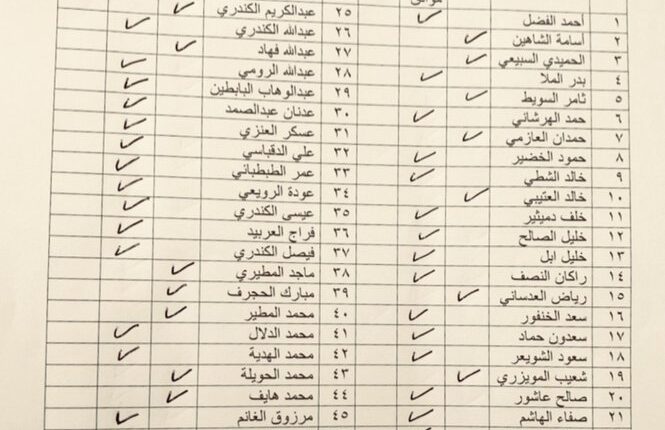 ١ أحمد الفضل
٢ أسامة الشاهين
٣ الحميدي السبيعي
٤ بدر الملا
٥ ثامر السويط
٦ حمد الهرشاني
٧ حمدان العازمي
٨ حمود الخضير
٩ خالد الشطي
١٠ خالد العتيبي
١١ خلف دميثير
١٢ خليل الصالح
١٣ خليل ابل
١٤ راكان النصف
١٥ رياض العدساني
١٦ سعد الخنفور
١٧ سعدون حماد
١٨ سعود الشويعر
١٩ شعيب المويزري
٢٠ صالح عاشور
٢١ صفاء الهاشم
٢٥ عبدالكريم الكندري
٢٦ عبدالله الكندري
٢٧ عبدالله فهاد
٢٨ عبدالله الرومي
٢٩ عبدالوهاب البابطين
٣٠ عدنان عبدالصمد
٣١ عسكر العنزي
٣٢ علي الدقباسي
٣٣ عمر الطبطبائي
٣٤ عودة الرويعي
٣٥ عيسى الكندري
٣٦ فراج العربيد
٣٧ فيصل الكندري
٣٨ ماجد المطيري
٣٩ مبارك الحجرف
٤٠ محمد المطير
٤١ محمد الدلال
٤٢ محمد الهدية
٤٣ محمد الحويلة
٤٤ محمد هايف
٤٥ مرزوق الغانم